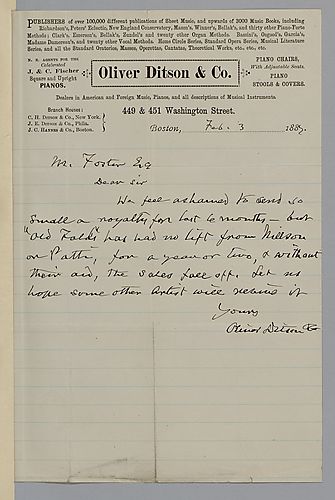 PUBLISHERS of over 100,000 different publications of Sheet Music, and upwards of 3000 Music Books, including
Richardson's, Peters' Eclectic, New England Conservatory, Mason's, Winner's, Bellak's, and thirty other Piano-Forte
Methods; Clark's, Emerson's, Bellak's, Zundel's and twenty other Organ Methods. Bassini's, Gugool's, Garcia's,
Madame Damoreau's, and twenty other Vocal Methods. Home Circle Series, Standard Opera Series, Musical Literature
Series, and all the Standard Oratorios, Masses, Operettas, Cantatas, Theoretical Works, etc. etc. etc.
N. E. AGENTS FOR THE
Celebrated
J. & C. Fischer
Square and Upright
PIANOS.
Oliver Ditson & Co.
PIANO CHAIRS,
With Adjustable Seats.
PIANO
STOOLS & COVERS.
Dealers in American and Foreign Music, Pianos, and all descriptions of Musical Instruments
449 & 451 Washington Street.
Branch Houses:
C. H. DITSON & Co., New York.
J. E. DITSON & Co., Phila.
J. C. HAYNES & Co., Boston.
Boston, Feb. 3 188
M. Foster Esq
Dear Sir
We feel ashamed to send so
small a royalty for last 6 months – but
"Old Folks" has had no lift from Nillson
or Patti, for a year or two, & without
their aid, the sales fall off. Let us
hope some other Artist will revive it
Yours
Oliver Ditson & Co